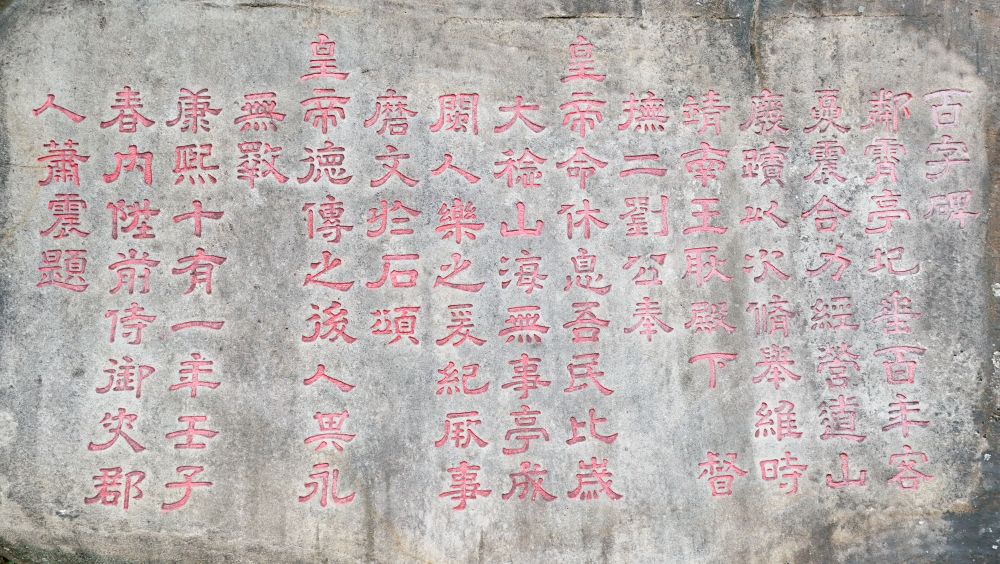 百字碑
鄰霄亭圮垂百年客
夏震合力經營道山
廢蹟以次脩舉維時
靖南王耿殿下 督
撫二劉公奉
皇帝命休息吾民比歲
大稔山海無事亭成
閩人樂之爰紀厥事
磨文於石頌
皇帝德傳之後人異永
無斁
康熙十有一年壬子
春內陞前侍御史郡
人蕭震題